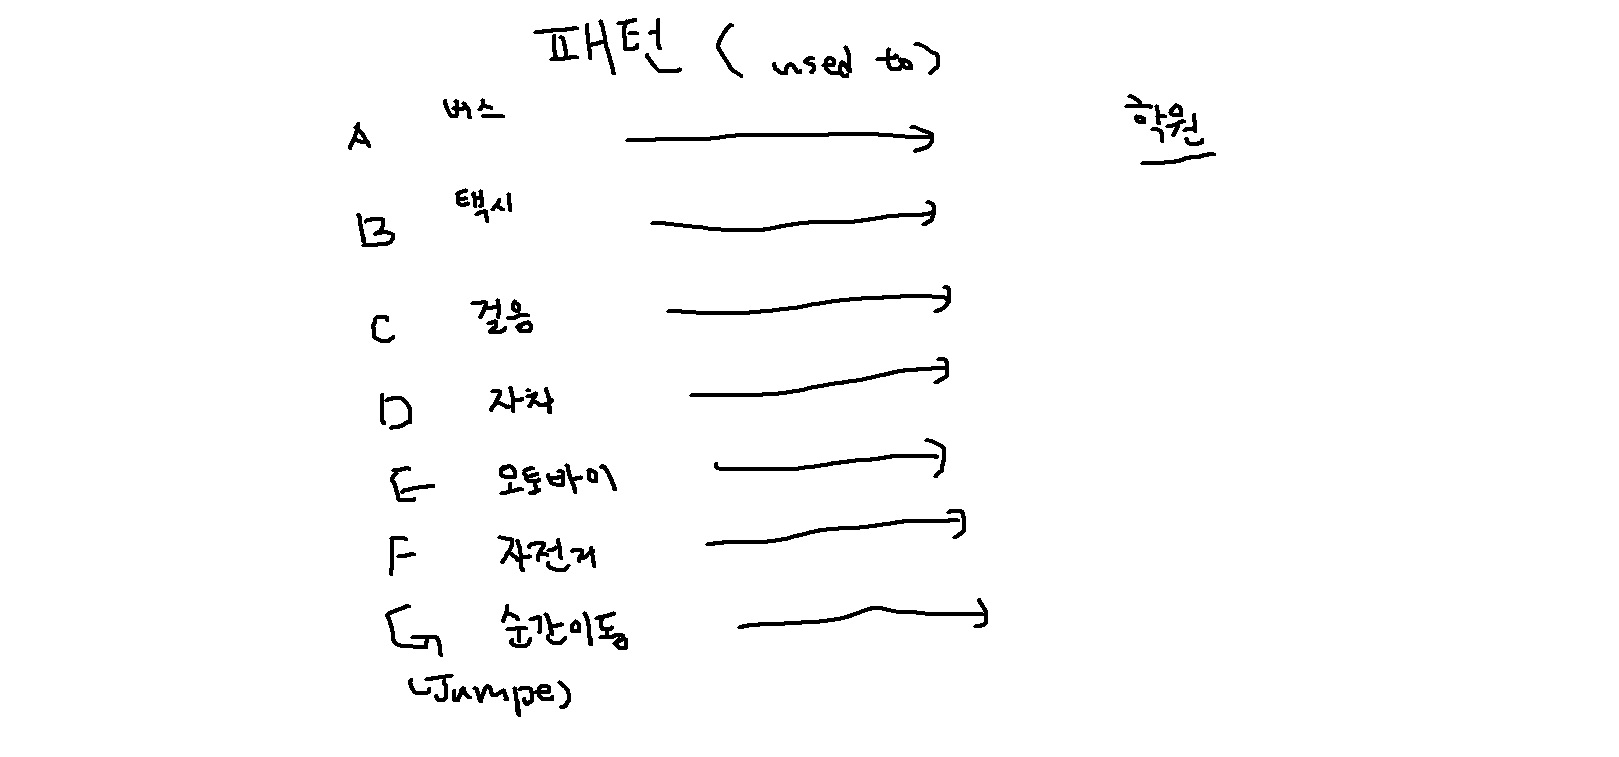 패턴 ( used to)
A 버스 학원
B 택시
C 걸음
D 자차
E 오토바이
F 자전거
G 순간이동
(Jumpe)